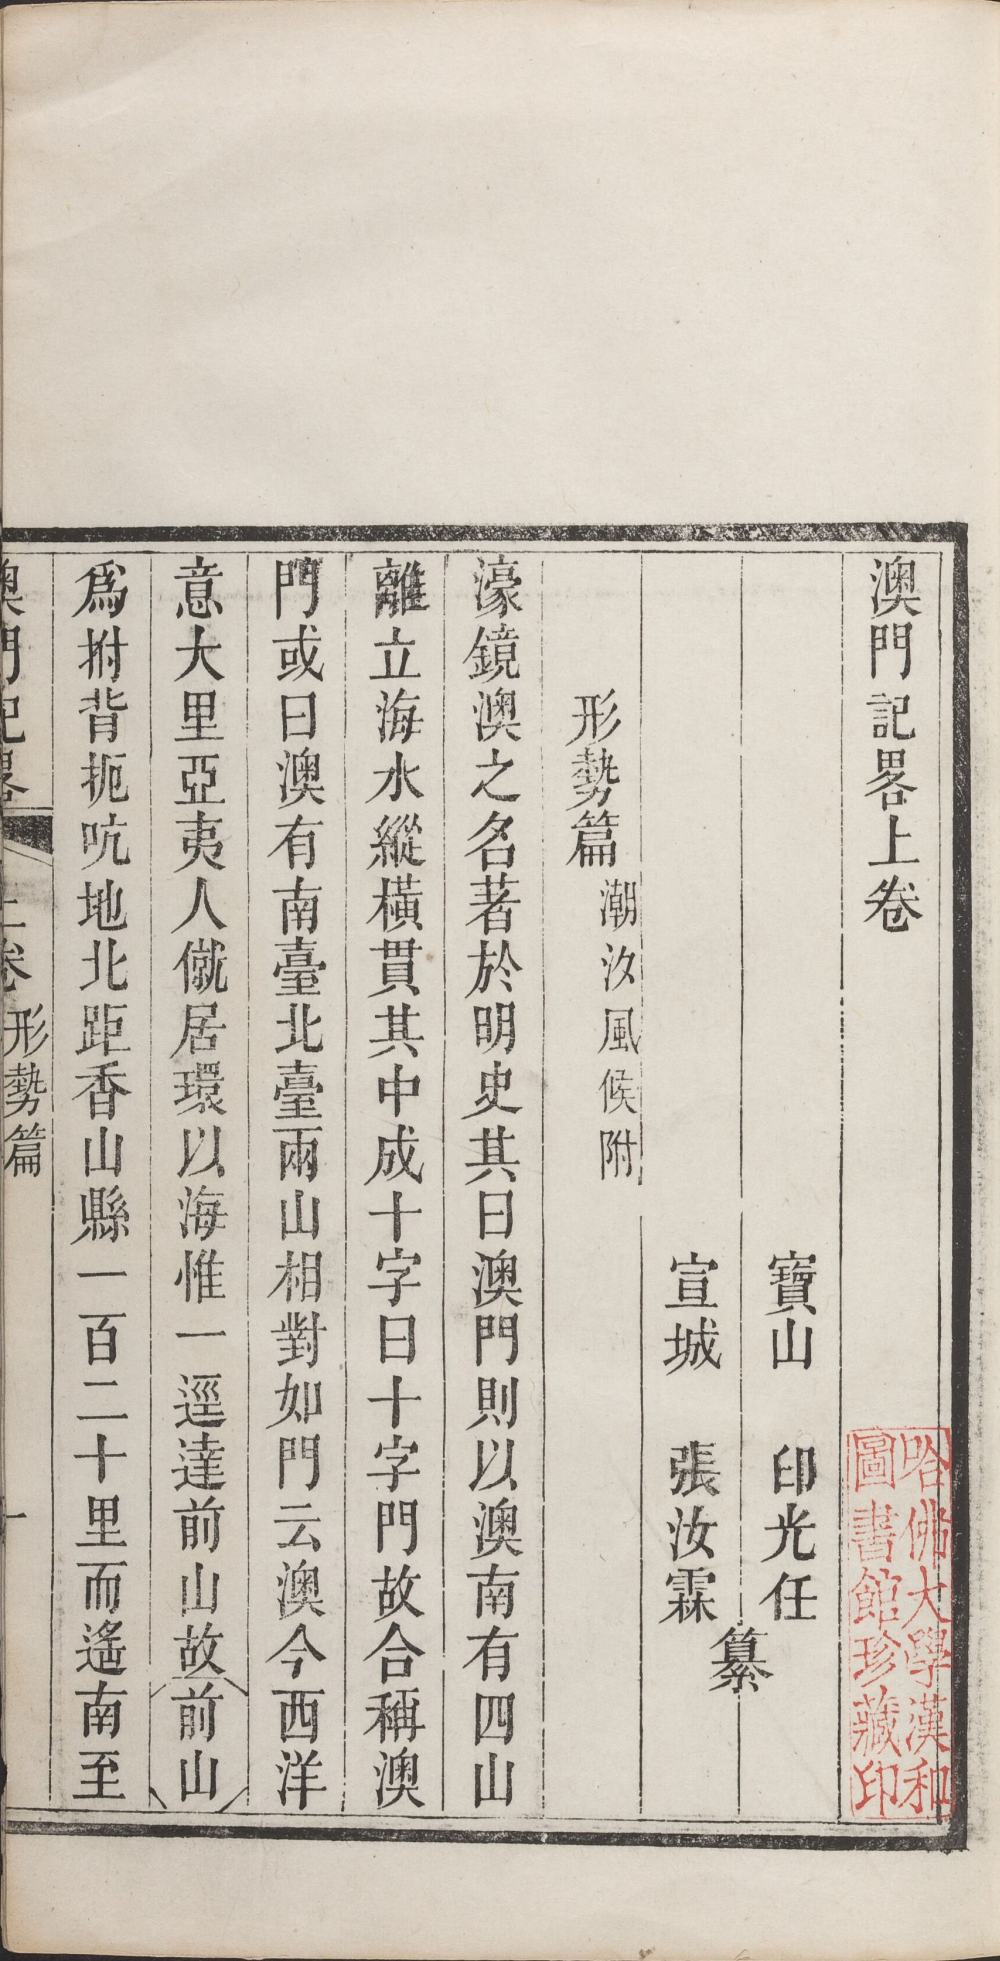 澳門記畧上卷
寶山 印光任
宣城 張汝霖
纂
形勢篇 潮汐風候附
濠鏡澳之名著於明史其曰澳門則以澳南有四山
離立海水縱橫貫其中成十字曰十字門故合稱澳
門或曰澳有南臺北臺兩山相對如門云澳今西洋
意大里亞夷人僦居環以海惟一逕達前山故前山
爲拊背扼吭地北距香山縣一百二十里而遙南至
澳門記畧 上卷 形勢篇 一
哈佛大學漢和
圖書館珍藏印